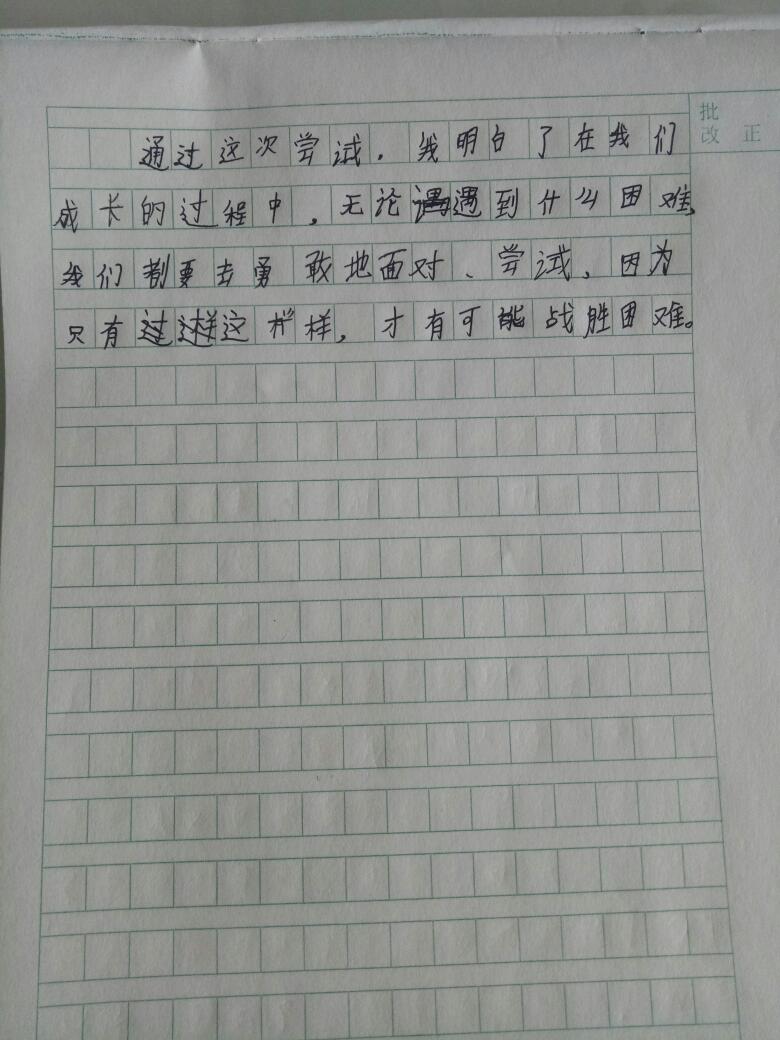 通过这次尝试，我明白了在我们
批改正
成长的过程中，无论遇到什么困难，
我们都要去勇敢地面对、尝试，因为
只有这样，才有可能战胜困难。